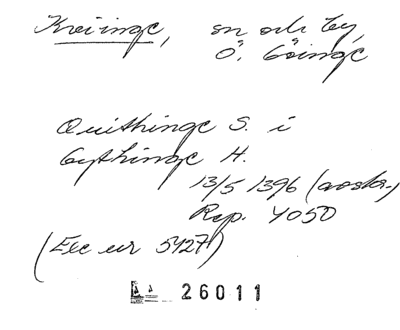 Kviinge, sn och by,
Ö. Göinge
Quithinge S. i
Gythinge H.
13/5 1396 (avskr.)
Rep. 4050
(Exc ur 5427)
26011